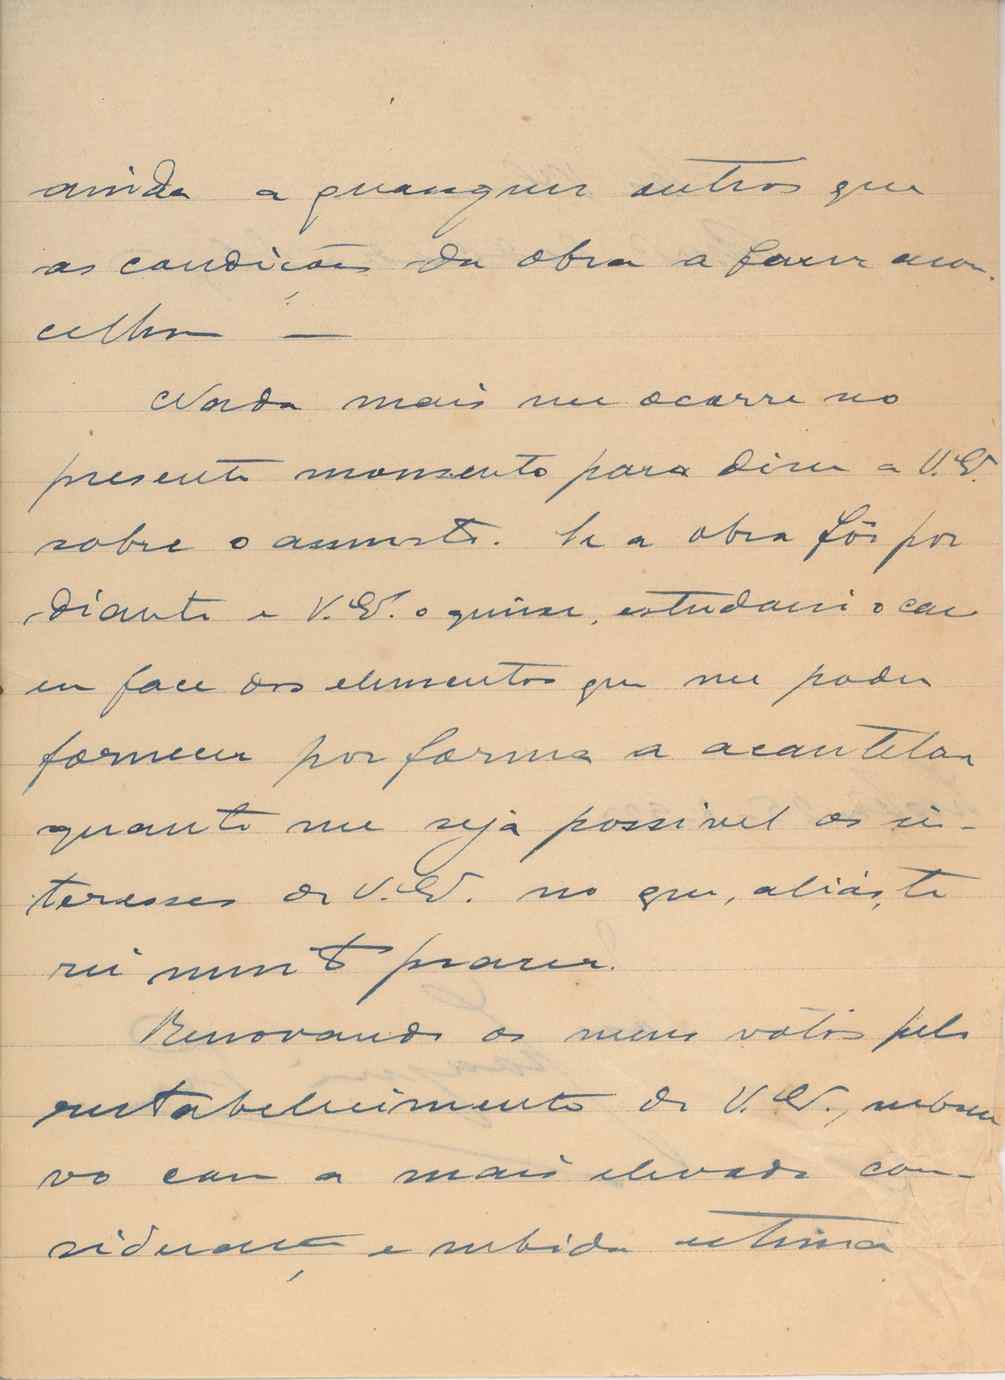 ainda a quaesquer outros que
as condições da obra a fazer acon-
celhem —
Nada mais me ocorre no
presente momento para dizer a V. Ex.
sobre o assunto. Se a obra fôr por
diante e V. Ex. o quizer, estudarei o caso
em face dos elementos que me poder
fornecer por forma a acautelar
quanto me seja possivel os in-
teresses de V. Ex. no que, aliás, te
rei muito prazer.
Renovando os meus vótos pelo
restabelecimento de V. Ex., subscre
vo com a mais elevada con-
sideração e subida estima